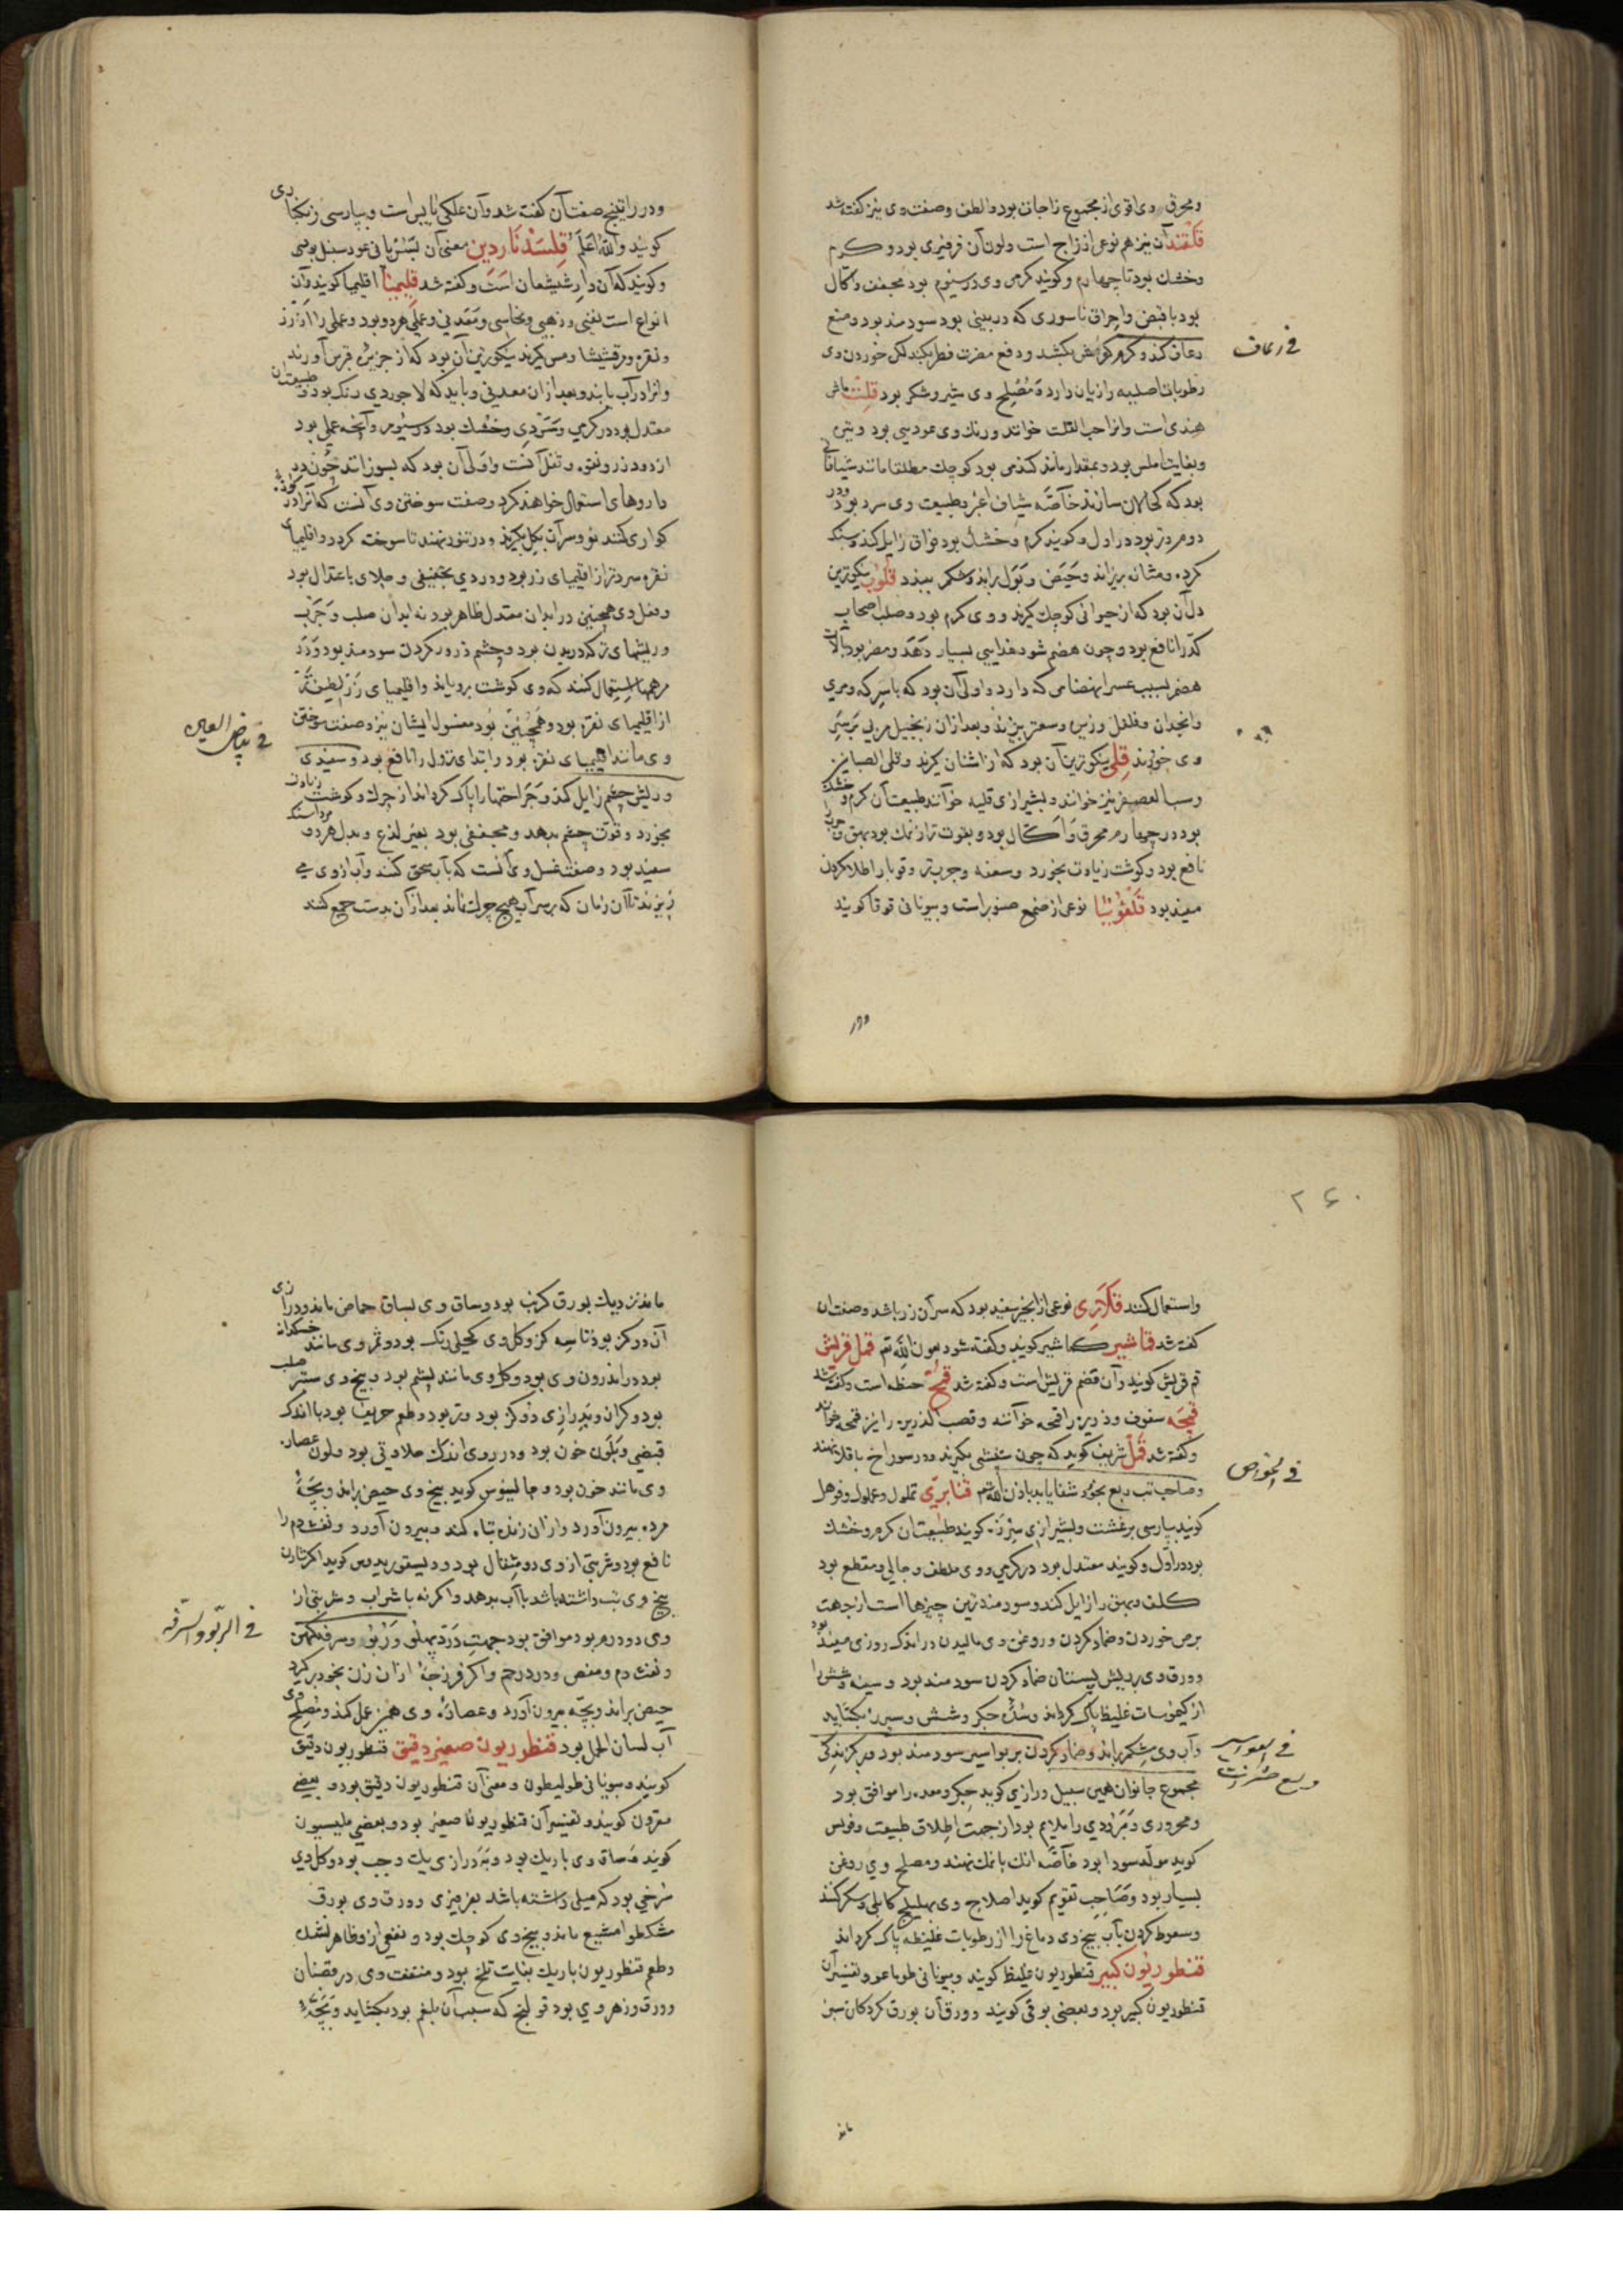 ومحرق وی اقوی از مجموع زاجات بود والطف وصفت وی نیز کفته شد
قلقند آن نیز هم نوعی از زاج است ولون آن فرفیری بود و کرم
وخشك بود تا چهارم وکویند کرمی وی در سیوم بود مجفف واکال
بود با قبض واحراق ناسوری که در بینی بود سودمند بود ومنع
رعاف کند وکرم کوش بکشد ودفع مضرت فطر بکند لکن خوردن وی
رطوبات اصلیه را زیان دارد ومصلح وی شیر وشکر بود قلت ماش
هندی است وانرا حب القلت خوانند ورنك وی عودی بود
وبغایت املس بود وبمقدار مانند کندمی بود کوچك مطلقا مانند شیافاتی
بود که کحالان سازند خاصه شیاف اغبر وطبیعت وی سرد بود در
دوم وتر بود در اول وکویند کرم وخشك بود فواق زایل کند وسنك
کرده ومثانه بریزاند وحیض وبول براند وشکم ببندد قلوب نیکوترین
دل آن بود که از حیوانی کوچك کیرند ووی کرم بود وصلب اصحاب
کد را نافع بود وچون هضم شود غذایی بسیار دهد ومضر بود بآلات
هضم بسبب عسر انهضامی که دارد واولی آن بود که با سرکه ومری
وانجدان وفلفل وزیره وسعتر بپزند وبعد ازان زنجبیل مربی برسر
وی خورند قلی نیکوترین آن بود که از اشنان کیرند وقلی الصباغین
وسب العصفر نیز خوانند وبشیرازی قلیه خوانند طبیعت آن کرم وخشك
بود در چهارم محرق واکال بود وبقوت تر از نمك بود بهق وجرب را
نافع بود وکوشت زیادت بخورد وسعفه وجرب تر وقوبا را طلا کردن
مفید بود قلفونیا نوعی از صمغ صنوبر است وبیونانی قوقا کویند
فی رعاف
ودر
ودر راتینج صفت آن کفته شد وآن علکی یابس است وبپارسی زنکباری
کویند والله اعلم قلسدناردین معنی آن بسریانی عود سنبل بوی
وکویند که آن دارشیشعان است وکفته شد قلیمیا اقلیمیا کویند وآن
انواع است نقیی وذهبی ونحاسی ومعدنی وعملی هردو بود وعملی را از زر
ونقره ومرقشیشا ومس کیرند نیکوترین آن بود که از جزیره قبرس آورند
وانرا در آب یابند وبعد ازان معدنی وباید که لاجوردی رنك بود وطبیعت آن
معتدل بود در کرمی وسردی وخشك بود در سیوم وآنچه عملی بود
از دود زر ونقره وثفل آنست واولی آن بود که بسوزانند چون در
داروهای استعمال خواهند کرد وصفت سوختن وی آنست که آنرا در کوزه
کواری کنند نو وسر آن بکل بکیرند ودر تنور نهند تا سوخته کردد واقلیمیای
نقره سردتر از اقلیمیای زر بود ودر وی تجفیفی وجلای باعتدال بود
وفعل وی همچنین در ابدان معتدل ظاهر بود نه ابدان صلب وجرب
وریشهای تر که در بدن بود وچشم ذرور کردن سودمند بود ودر
مرهمها استعمال کنند که وی کوشت برویاند واقلیمیای زر لطیفتر
از اقلیمیای نقره بود وهمچنین بود مغسول ایشان نیز وصفت سوختن
وی مانند اقلیمیای نقره بود وابتدای نزول را نافع بود وسفیدی
وریش چشم زایل کند وجراحتها را پاك کرداند از چرك وکوشت زیادت
بخورد وقوت چشم بدهد ومجففی بود بغیر لذع وبدل هردو مرداسنك
سفید بود وصفت غسل وی آنست که بآب سحق کنند وآب از وی می
ریزند تا آن زمان که برسر آب هیچ چرك نماند بعد ازان بدست جمع کنند
فی بیاض العین
۲۶۰
واستعمال کنند قلازی نوعی از انجیر سفید بود که سر آن زرد باشد وصفت آن
کفته شد قماشیر کماشیر کویند وکفته شود بعون الله تم قمل قریش
تم قریش کویند وآن قضم قریش است وکفته شد قمح حنطه است وکفته شد
قمحه سفوف وذریره را قمحه خوانند وقصب الذریره را نیز قمحه خوانند
وکفته شد قمل شریف کوید که چون شپشی بکیرند ودر سوراخ باقلا نهند
وصاحب تب ربع بخورد شفا یابد باذن الله تم قنابری تملول وغملول وقوهل
کویند بپارسی برغشت وبشیرازی سرزه کویند طبیعت آن کرم وخشك
بود در اول وکویند معتدل بود در کرمی ووی ملطف وجالی ومقطع بود
کلف وبهق را زایل کند وسودمندترین چیزها است از جهت
برص خوردن وضماد کردن وروغن وی مالیدن در اندك روزی مفید بود
وورق وی بر ریش پستان ضماد کردن سودمند بود وسینه وشش را
از کیموسات غلیظ پاك کرداند وسده جکر وشش وسپرز بکشاید
وآب وی شکم براند وضماد کردن بر بواسیر سودمند بود وبر کزندکی
مجموع جانوران همین سبیل ورازی کوید جکر ومعده را موافق بود
ومحروری ومبرودی را ملایم بود از جهت اطلاق طبیعت وفولس
کوید مولد سودا بود خاصه انك با نمك نهند ومصلح وی روغن
بسیار بود وصاحب تقویم کوید اصلاح وی بهلیلج کابلی وسکر کنند
وسعوط کردن بآب بیخ وی دماغ را از رطوبات غلیظه پاك کرداند
قنطوریون کبیر قنطوریون غلیظ کویند وبیونانی طوماعو وتفسیر آن
قنطوریون کبیر بود وبعضی بوقی کویند وورق آن بورق کردکان سبز
فی الخواص
فی البواسیر
مانند
مانند نزدیك بورق کرنب بود وساق وی بساق حماض ماند ودرازی
آن دو کز بود تا سه کز وکل وی کحلی رنك بود وثمر وی مانند خسکدانه
بود در اندرون وی بود وکل وی مانند پشم بود وبیخ وی ستبر صلب
بود وکران وبدرازی دو کز بود وتر بود وطعم حریف بود با اندك
قبضی وبلون خون بود ودر روی اندك حلاوتی بود ولون عصاره
وی مانند خون بود وجالینوس کوید بیخ وی حیض براند وبچه
مرده بیرون آورد واز ان زنده تباه کند وبیرون آورد ونفث دم را
نافع بود وشربتی از وی دو مثقال بود ودیسقوریدوس کوید اکر
بیخ وی تب داشته باشد با آب بدهد واکرنه با شراب وشربتی از
وی دو درم بود موافق بود جهت درد پهلو وربو وسرفه کهن
ونفث دم ومغص ودرد رحم واکر فرزجه ازان زن بخود برکیرد
حیض براند وبچه بیرون آورد وعصاره وی همین عمل کند ومصلح وی
آب لسان الحمل بود قنطوریون صغیر دقیق قنطوریون دقیق
کویند وبیونانی طولیطون ومعنی آن قنطوریون دقیق بود وبعضی
مقرون کویند وتفسیر آن قنطوریون صغیر بود وبعضی ملیسیون
کویند وساق وی باریك بود وبدرازی یك وجب بود وکل وی
سرخی بود که میلی داشته باشد بفرفیری وورق وی بورق
مشکطرامشیع ماند وبیخ وی کوچك بود ونفعی ازو ظاهر نشد
وطعم قنطوریون باریك بغایت تلخ بود ومنفعت وی در قضبان
وورق وزهر وی بود قولنج که سبب آن بلغم بود بکشاید وبچه
فی الربو والسرفه